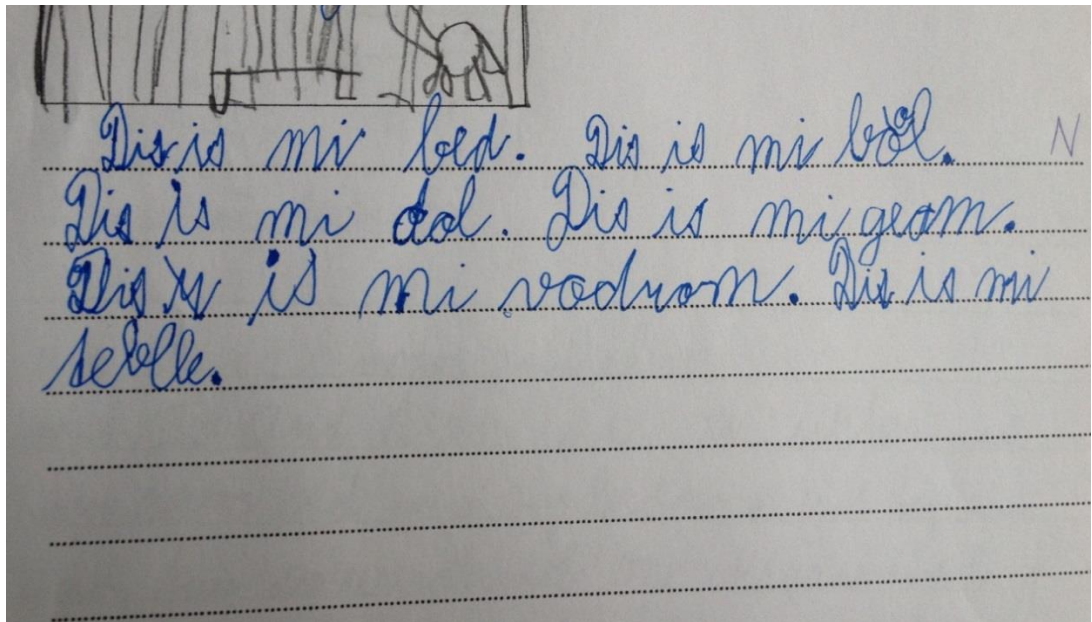 Dis is mi bed. Dis is mi bol. N
Dis is mi dol. Dis is mi geam.
Dis is mi vodrom. Dis is mi